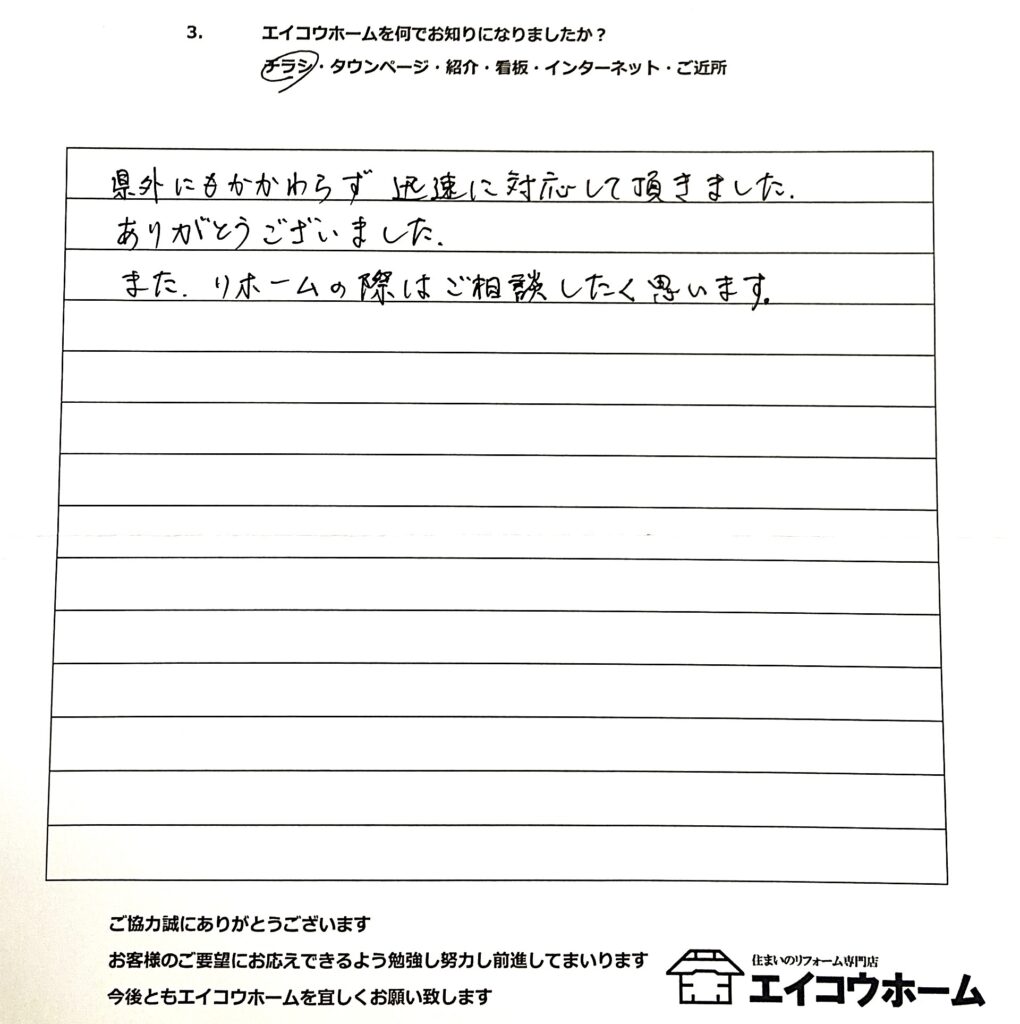 3. エイコウホームを何でお知りになりましたか？
チラシ・タウンページ・紹介・看板・インターネット・ご近所
県外にもかかわらず 迅速に対応して頂きました.
ありがとうございました.
また. リホームの際はご相談したく思います.
ご協力誠にありがとうございます
お客様のご要望にお応えできるよう勉強し努力し前進してまいります
今後ともエイコウホームを宜しくお願い致します
住まいのリフォーム専門店
エイコウホーム